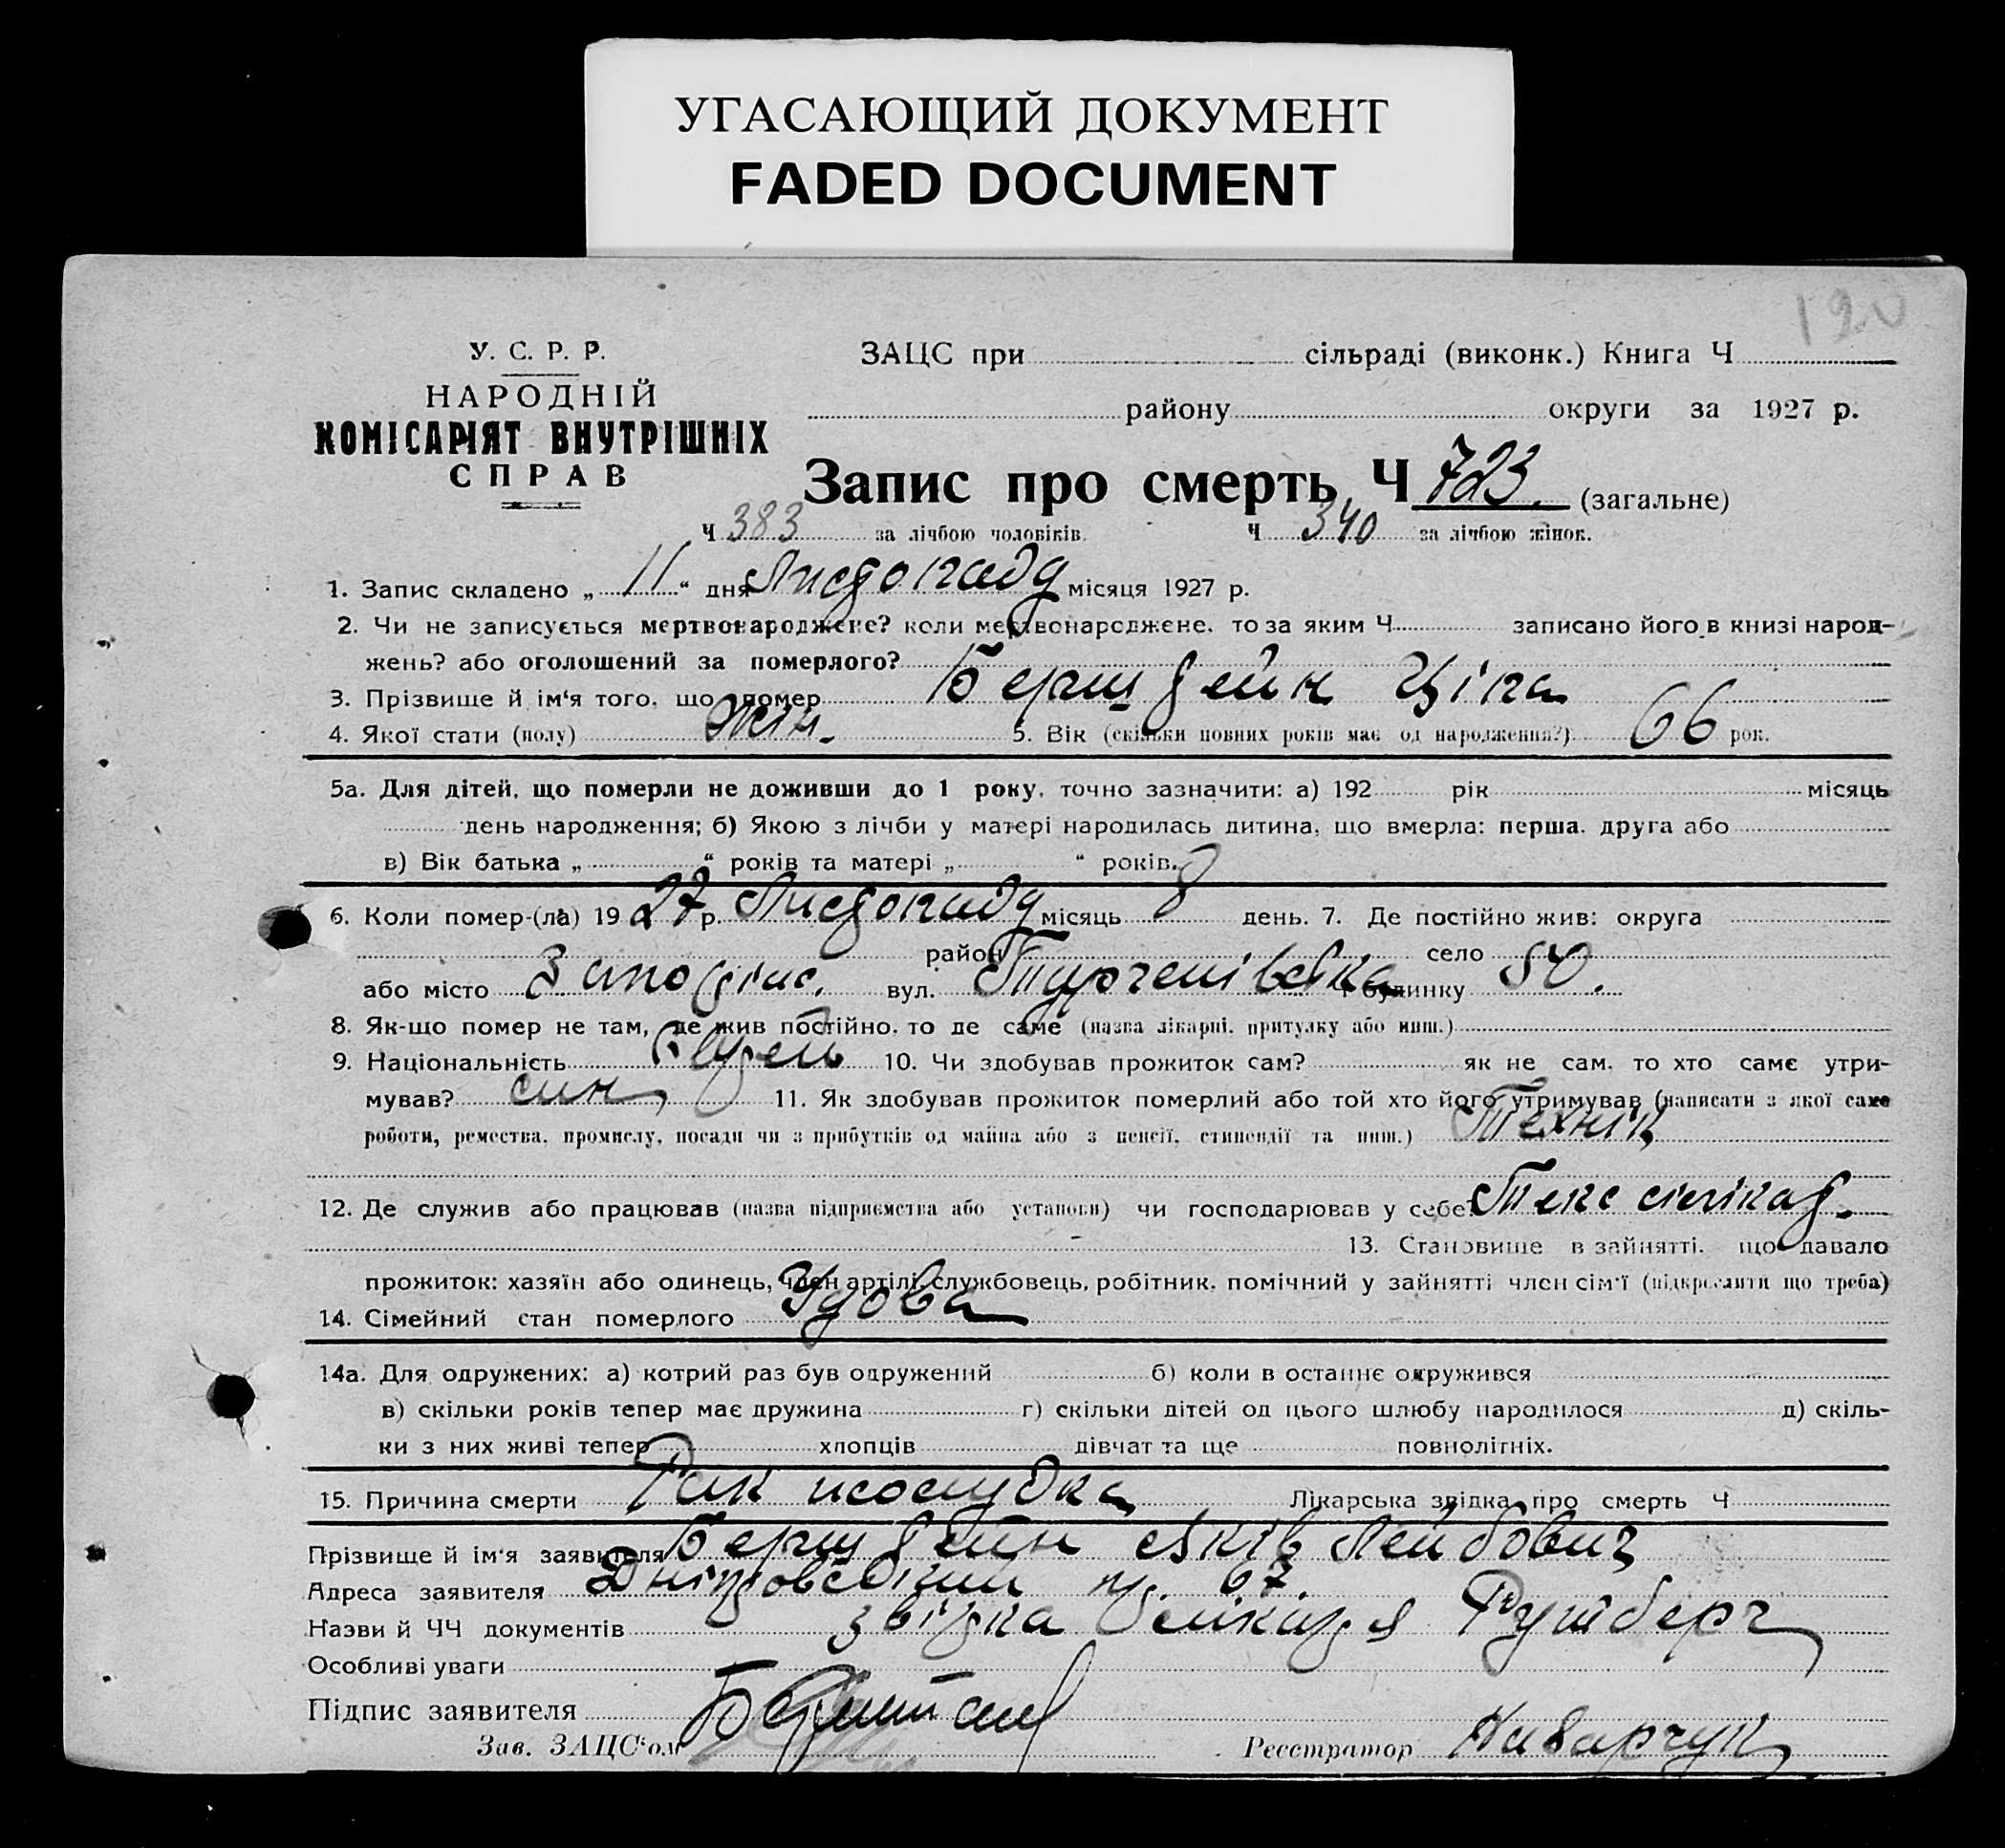 УГАСАЮЩИЙ ДОКУМЕНТ
FADED DOCUMENT
120
У. С. Р. Р.
НАРОДНІЙ
КОМІСАРІЯТ ВНУТРІШНІХ
СПРАВ
ЗАЦС при сільраді (виконк.) Книга Ч
району округи за 1927 р.
Запис про смерть Ч 723. (загальне)
Ч 383 за лічбою чоловіків. Ч 340 за лічбою жінок.
1. Запис складено „ 11 “ дня Листопаду місяця 1927 р.
2. Чи не записується мертвонароджене? коли мертвонароджене, то за яким Ч записано його в книзі народ-
жень? або оголошений за померлого?
3. Прізвище й ім‘я того, що помер Берштейн Ціпа
4. Якої стати (полу) жін. 5. Вік (скільки повних років має од народження?) 66 рок.
5а. Для дітей, що померли не доживши до 1 року, точно зазначити: а) 192 рік місяць
день народження; б) Якою з лічби у матері народилась дитина, що вмерла: перша, друга або
в) Вік батька „ “ років та матері „ “ років.
6. Коли помер-(ла) 19 27 р. Листопаду місяць 8 день. 7. Де постійно жив: округа
район село
або місто вул. Тургенівська Ч будинку 50.
8. Як-що помер не там, де жив постійно, то де саме (назва лікарні, притулку або инш.)
9. Національність 10. Чи здобував прожиток сам? як не сам, то хто саме утри-
мував? син 11. Як здобував прожиток померлий або той хто його утримував (написати з якої саме
роботи, ремества, промислу, посади чи з прибутків од майна або з пенсії, стипендії та инш.) Технік
12. Де служив або працював (назва підприємства або установи) чи господарював у себе?
13. Становище в зайнятті, що давало
прожиток: хазяїн або одинець, член артілі, службовець, робітник, помічний у зайнятті член сім‘ї (підкреслити що треба)
14. Сімейний стан померлого Удова
14а. Для одружених: а) котрий раз був одружений б) коли в останнє одружився
в) скільки років тепер має дружина г) скільки дітей од цього шлюбу народилося д) скіль-
ки з них живі тепер хлопців дівчат та ще повнолітніх.
15. Причина смерти Рак шолудка Лікарська звідка про смерть Ч
Прізвище й ім‘я заявителя Берштейн Яків Лейбович
Адреса заявителя 67.
Назви й ЧЧ документів звідка лікаря Рутберг
Особливі уваги
Підпис заявителя
Зав. ЗАЦС‘ом Реєстратор